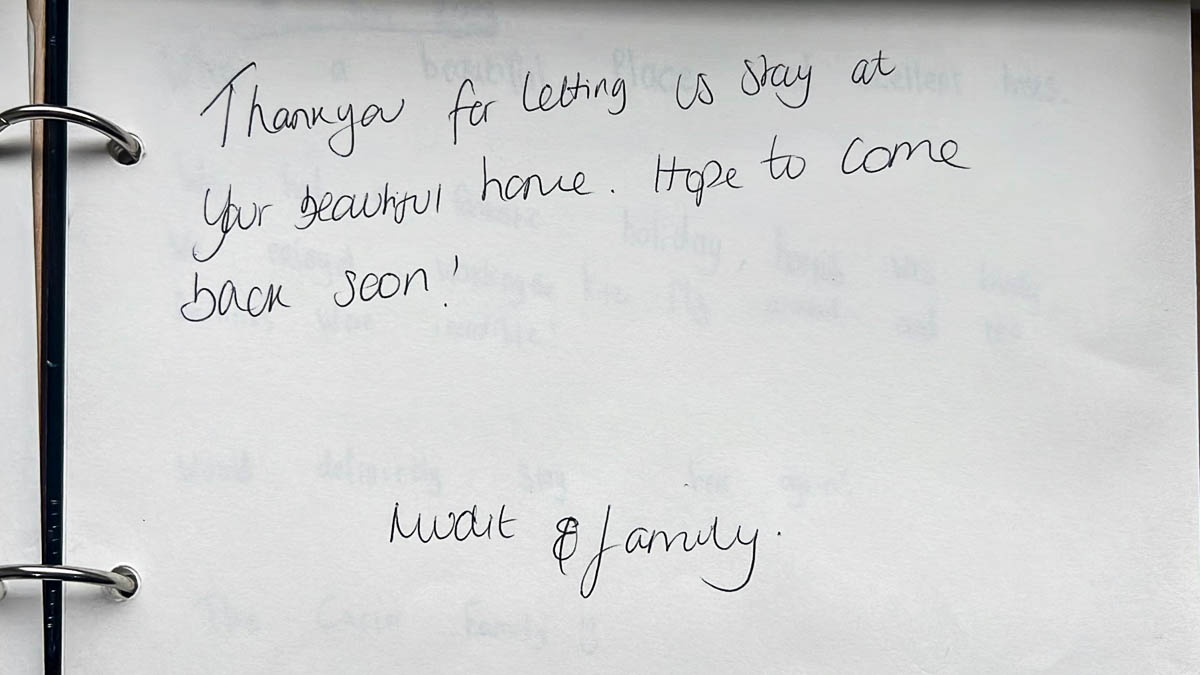 Thankyou for letting us stay at
your beautiful home. Hope to come
back soon!
& family.